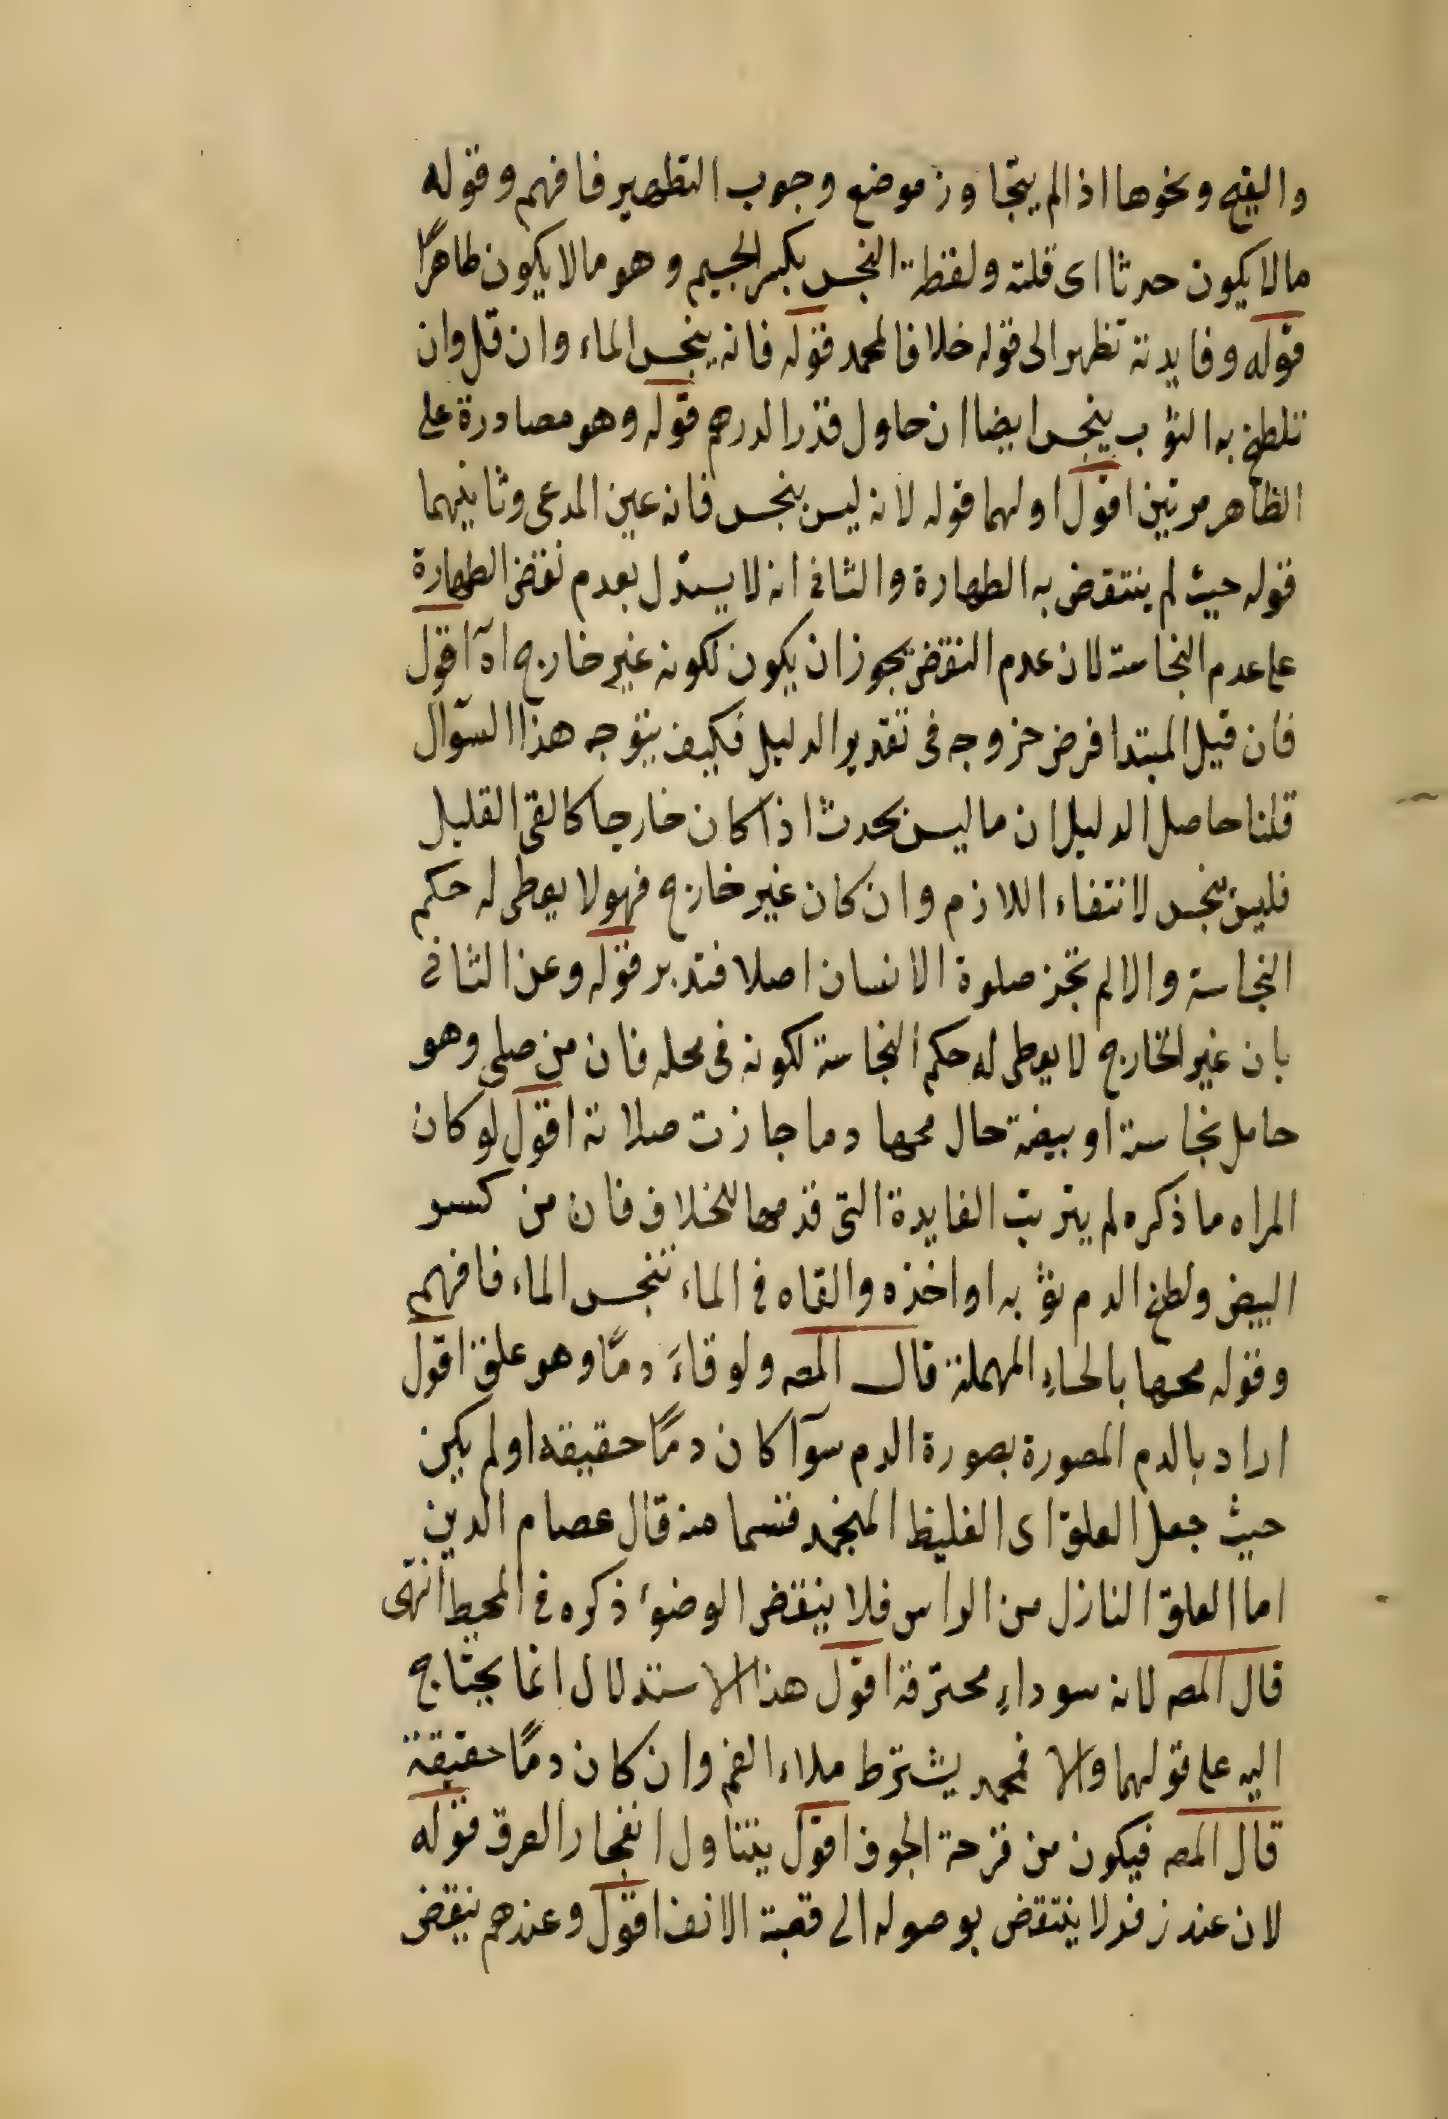 والقيح ونحوها اذا لم يتجاوز موضع وجوب التطهير فافهم وقوله
ما لا يكون حدثا اى قلته ولفظة النجس بكسر الجيم وهو ما لا يكون طاهرًا
قوله وفايدته تظهر الى قوله خلافا لمحمد قوله فانه ينجس الماء وان قل وان
تلطخ به الثوب ينجس ايضا ان حاول قدر الدرهم قوله وهو مصادرة على
الظاهر مرتين اقول اولهما قوله لانه ليس بنجس فانه عين المدعى وثانيهما
قوله حيث لم ينتقض به الطهارة والثانى انه لا يستدل بعدم نقض الطهارة
على عدم النجاسة لان عدم النقض يجوز ان يكون لكونه غير خارج اه اقول
فان قيل المبتدا فرض خروجه فى تقدير الدليل فكيف يتوجه هذا السؤال
قلنا حاصل الدليل ان ما ليس بحدث اذا كان خارجا كالقى القليل
فليس بنجس لانتفاء اللازم وان كان غير خارج فهو لا يعطى له حكم
النجاسة والا لم تجز صلوة الانسان اصلا فتدبر قوله وعن الثانى
بان غير الخارج لا يعطى له حكم النجاسة لكونه فى محله فان من صلى وهو
حامل نجاسة او بيضة حال محها دما جازت صلاته اقول لو كان
المراد ما ذكره لم يترتب الفايدة التى قدمها للخلاف فان من كسر
البيض ولطخ الدم ثوبه او اخذه والقاه فى الماء تنجس الماء فافهم
وقوله محها بالحاء المهملة قال المصه ولو قاءَ دمًا وهو علق اقول
اراد بالدم المصورة بصورة الدم سوآ كان دمًا حقيقه او لم يكن
حيث جعل العلق اى الغليظ المنجمد قسما منه قال عصام الدين
اما العلق النازل من الراس فلا ينقض الوضوء ذكره فى المحيط انتهى
قال المصه لانه سوداء محترقة اقول هذا الاستدلال انما يحتاج
اليه على قولهما والا فمحمد يشترط ملاء الفم وان كان دمًا حقيقة
قال المصه فيكون من قرحة الجوف اقول يتناول انفجار العرق قوله
لان عند زفر لا ينتقض بوصوله الى قصبة الانف اقول وعندهم ينقض